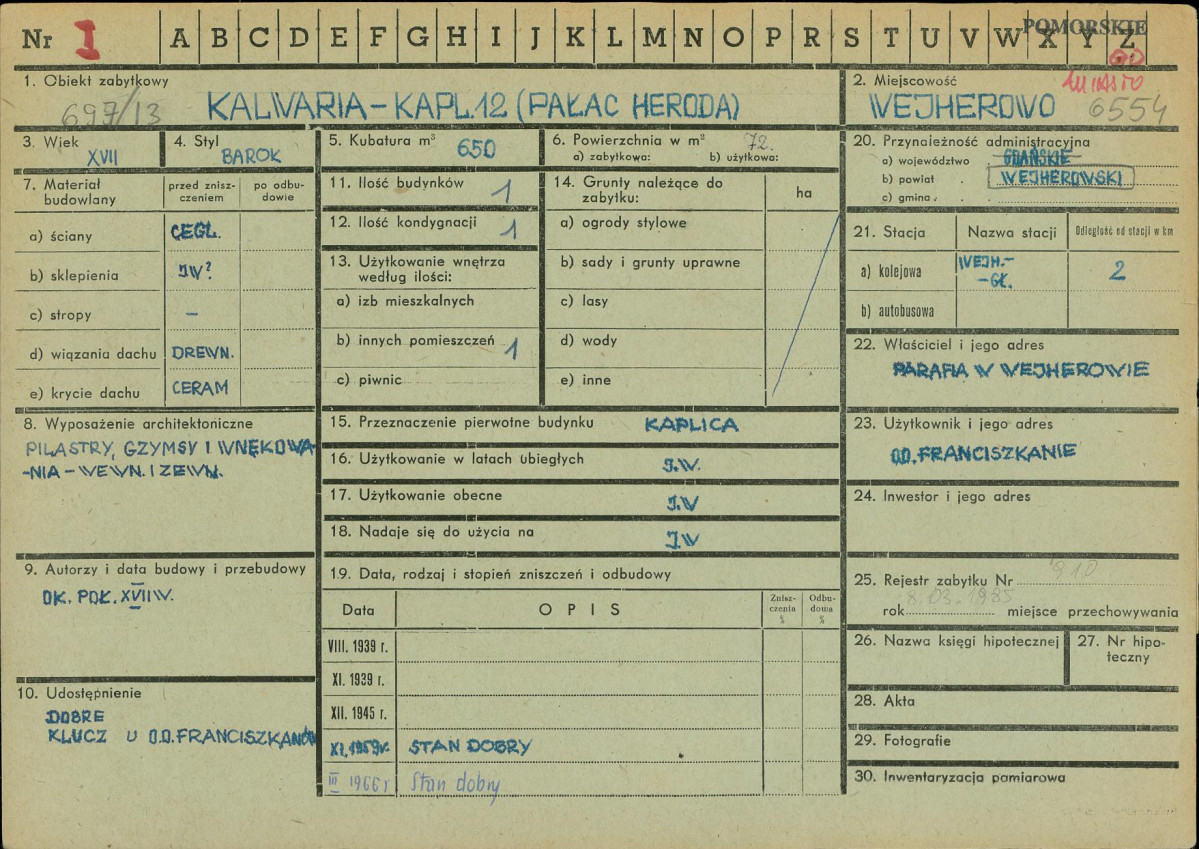 Nr I A B C D E F G H I J K L M N O P R S T U V W X Y Z
POMORSKIE
1. Obiekt zabytkowy
697/13
KALWARIA – KAPL. 12 (PAŁAC HERODA)
2. Miejscowość
miasto
WEJHEROWO 6554
3. Wiek
XVII
4. Styl
BAROK
5. Kubatura m³ 650
6. Powierzchnia w m² 72.
a) zabytkowa: b) użytkowa:
20. Przynależność administracyjna
a) województwo GDAŃSKIE
b) powiat WEJHEROWSKI
c) gmina
7. Materiał budowlany
przed znisz-
czeniem
po odbu-
dowie
a) ściany CEGŁ.
b) sklepienia J.W?
c) stropy –
d) wiązania dachu DREWN.
e) krycie dachu CERAM
11. Ilość budynków 1
12. Ilość kondygnacji 1
13. Użytkowanie wnętrza
według ilości:
a) izb mieszkalnych
b) innych pomieszczeń 1
c) piwnic
14. Grunty należące do
zabytku:
ha
a) ogrody stylowe
b) sady i grunty uprawne
c) lasy
d) wody
e) inne
21. Stacja Nazwa stacji Odległość od stacji w km
a) kolejowa WEJH.-
-GŁ. 2
b) autobusowa
22. Właściciel i jego adres
PARAFIA W WEJHEROWIE
8. Wyposażenie architektoniczne
PILASTRY, GZYMSY I WNĘKOWA-
-NIA – WEWN. I ZEWN.
15. Przeznaczenie pierwotne budynku KAPLICA
16. Użytkowanie w latach ubiegłych J.W.
17. Użytkowanie obecne J.W
18. Nadaje się do użycia na J.W
23. Użytkownik i jego adres
O.O. FRANCISZKANIE
24. Inwestor i jego adres
9. Autorzy i data budowy i przebudowy
OK. POŁ. XVII W.
10. Udostępnienie
DOBRE
KLUCZ U O.O. FRANCISZKANÓW
19. Data, rodzaj i stopień zniszczeń i odbudowy
Data OPIS
Znisz-
czenia
%
Odbu-
dowa
%
VIII. 1939 r.
XI. 1939 r.
XII. 1945 r.
XI. 1959 r. STAN DOBRY
III 1966 r Stan dobry
25. Rejestr zabytku Nr 910
rok 8.03.1985 miejsce przechowywania
26. Nazwa księgi hipotecznej
27. Nr hipo-
teczny
28. Akta
29. Fotografie
30. Inwentaryzacja pamiarowa